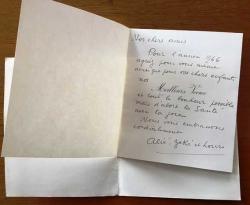 Mes chers amis
Pour l'année 966
agréez pour vous même
ainsi que pour vos chers enfants,
nos
Meilleurs Vœux
et tout le bonheur possible
mais d'abord la Santé
avec la joie.
Nous vous embrassons
cordialement